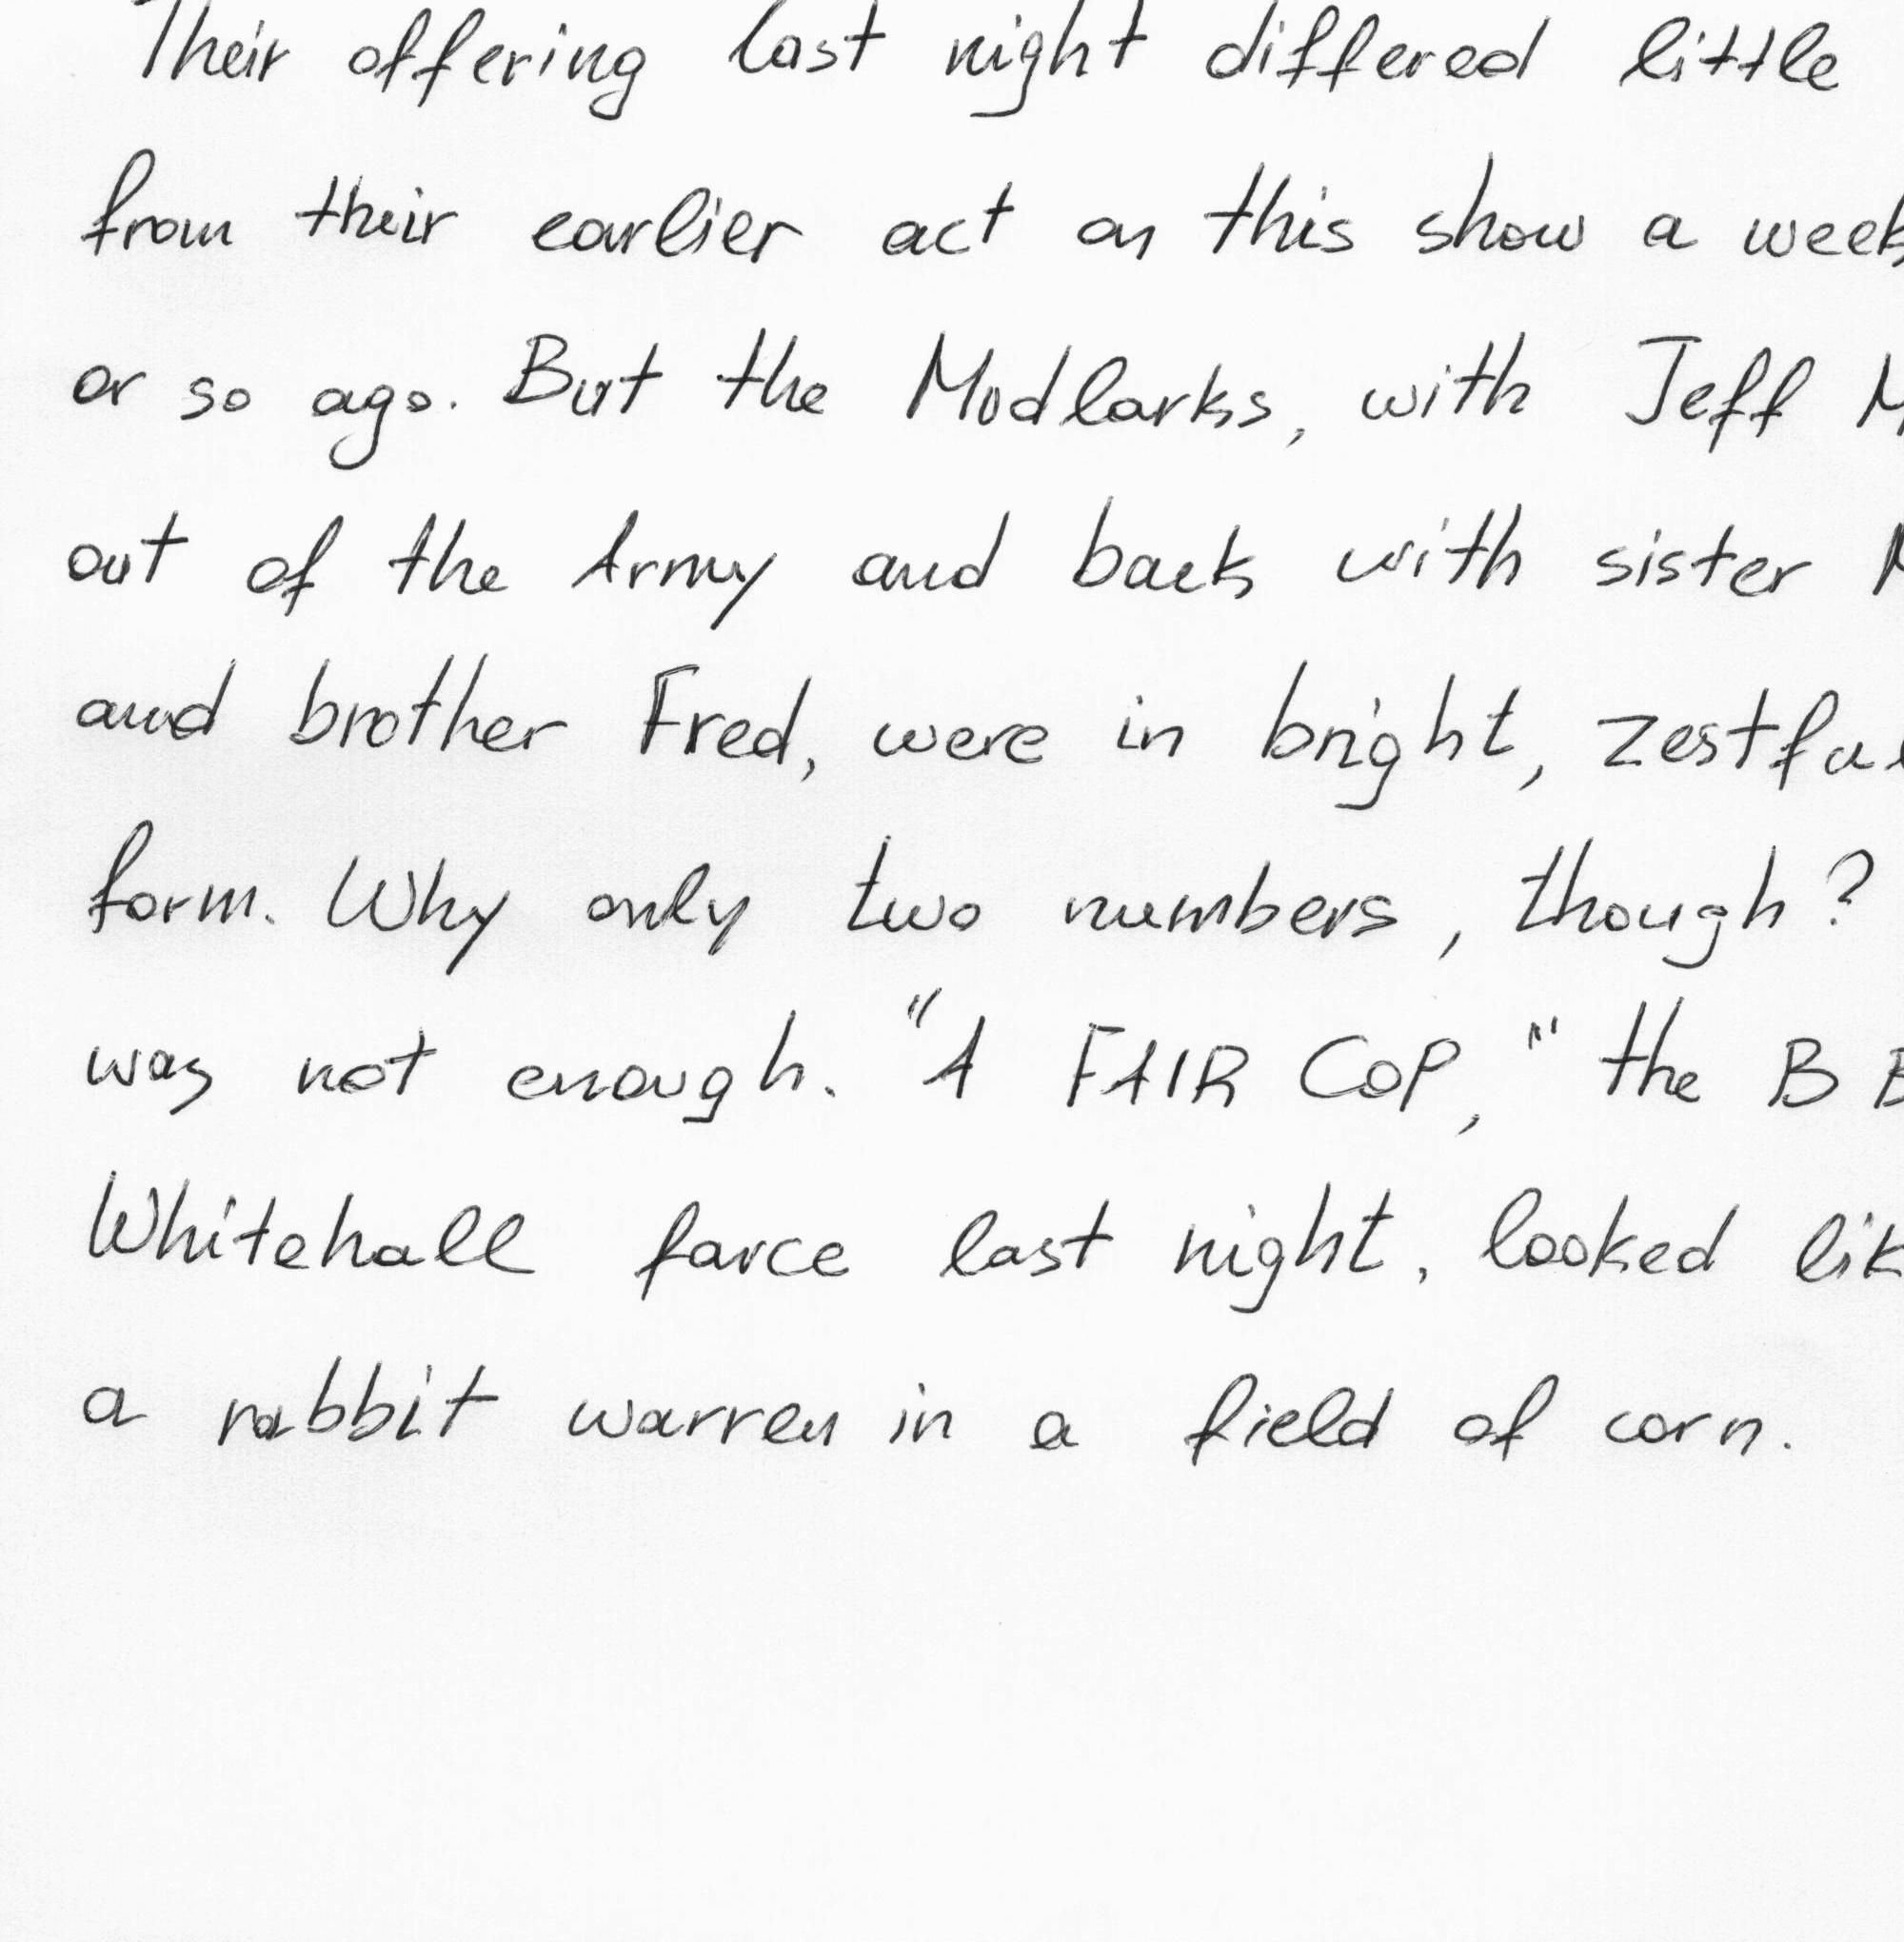 Their offering last night differed little
from their earlier act on this show a week
or so ago. But the Modlarks, with Jeff
out of the Army and back with sister
and brother Fred, were in bright, zestful
form. Why only two numbers, though?
was not enough. "A FAIR COP," the B
Whitehall farce last night, looked
a rabbit warren in a field of corn.